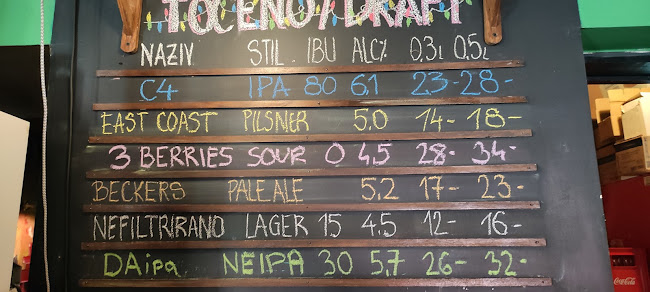 TOČENO/DRAFT
NAZIV STIL. IBU ALC% 0,3L 0,5L
C4 IPA 80 6,1 23- 28-
EAST COAST PILSNER 5,0 14- 18-
3 BERRIES SOUR 0 4,5 28- 34-
BECKERS PALE ALE 5,2 17- 23-
NEFILTRIRANO LAGER 15 4.5 12- 16-
DAipa NEIPA 30 5,7 26- 32-
Coca-Cola